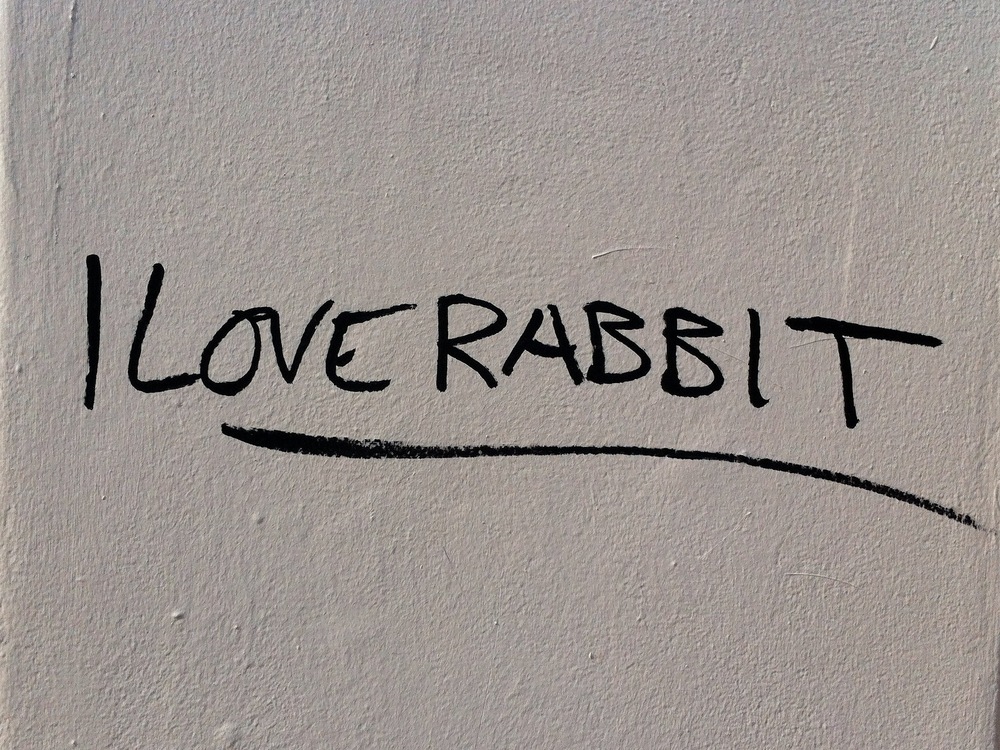 I LOVE RABBIT